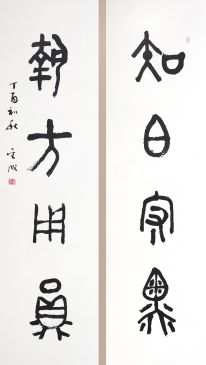 知白守黑
執方用員
丁酉初秋